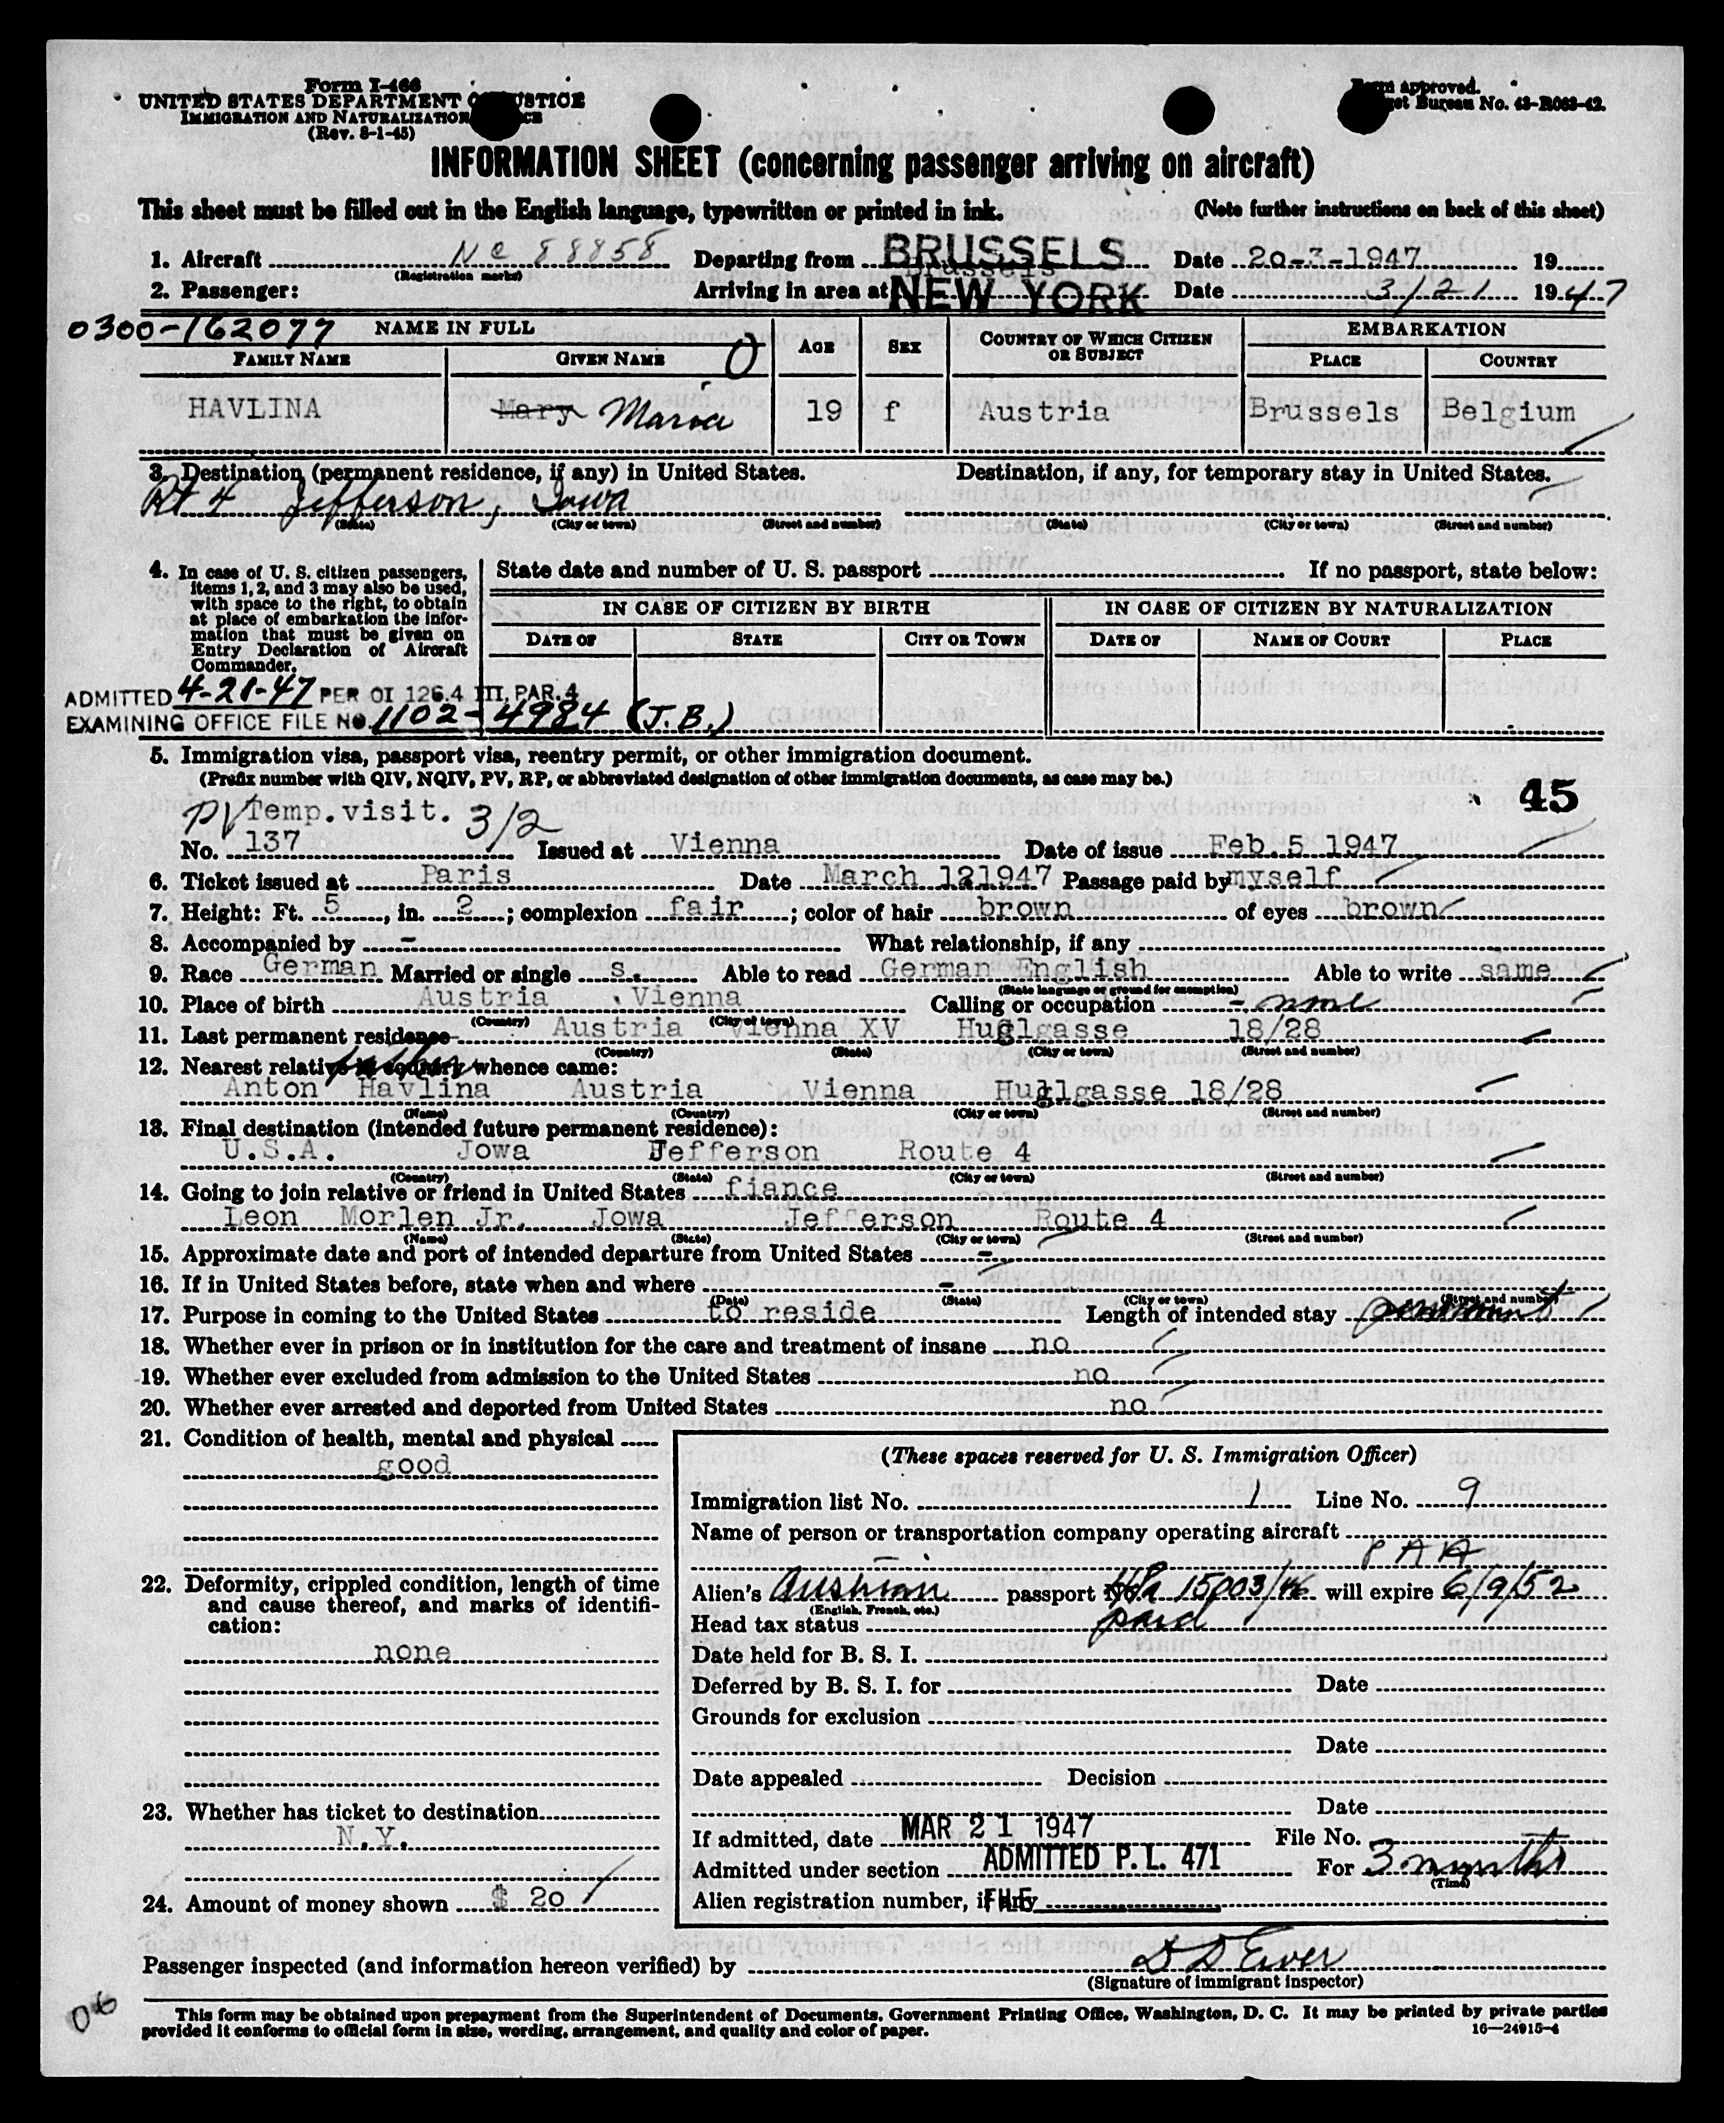 Form I-466
UNITED STATES DEPARTMENT OF JUSTICE
IMMIGRATION AND NATURALIZATION SERVICE
(Rev. 8-1-45)
Form approved.
Budget Bureau No. 43-R063-42.
INFORMATION SHEET (concerning passenger arriving on aircraft)
This sheet must be filled out in the English language, typewritten or printed in ink. (Note further instructions on back of this sheet)
1. Aircraft NC 88858 Departing from Brussels BRUSSELS Date 20-3-1947 19
(Registration marks)
2. Passenger: Arriving in area at NEW YORK Date 3/21 1947
0300-162077 NAME IN FULL AGE SEX COUNTRY OF WHICH CITIZEN OR SUBJECT EMBARKATION
FAMILY NAME GIVEN NAME O PLACE COUNTRY
HAVLINA Mary Maria 19 f Austria Brussels Belgium
3. Destination (permanent residence, if any) in United States. Destination, if any, for temporary stay in United States.
Rt 4 Jefferson, Iowa
(State) (City or town) (Street and number) (State) (City or town) (Street and number)
4. In case of U. S. citizen passengers, items 1, 2, and 3 may also be used, with space to the right, to obtain at place of embarkation the information that must be given on Entry Declaration of Aircraft Commander.
State date and number of U. S. passport If no passport, state below:
IN CASE OF CITIZEN BY BIRTH IN CASE OF CITIZEN BY NATURALIZATION
DATE OF STATE CITY OR TOWN DATE OF NAME OF COURT PLACE
ADMITTED 4-21-47 PER OI 126.4 III, PAR. 4
EXAMINING OFFICE FILE NO. 1102-4984 (J.B.)
5. Immigration visa, passport visa, reentry permit, or other immigration document.
(Prefix number with QIV, NQIV, PV, RP, or abbreviated designation of other immigration documents, as case may be.)
45
PV Temp.visit. 3/2
No. 137 Issued at Vienna Date of issue Feb.5 1947
6. Ticket issued at Paris Date March 121947 Passage paid by myself
7. Height: Ft. 5, in. 2; complexion fair; color of hair brown of eyes brown
8. Accompanied by - What relationship, if any
9. Race German Married or single s. Able to read German English Able to write same
(State language or ground for exemption)
10. Place of birth Austria Vienna Calling or occupation - none
(Country) (City or town)
11. Last permanent residence Austria Vienna XV Huglgasse 18/28
(Country) (State) (City or town) (Street and number)
12. Nearest relative in country whence came: father
Anton Havlina Austria Vienna Huglgasse 18/28
(Name) (Country) (City or town) (Street and number)
13. Final destination (intended future permanent residence):
U.S.A. Jowa Jefferson Route 4
(Country) (State) (City or town) (Street and number)
14. Going to join relative or friend in United States fiance
Leon Morlen Jr. Jowa Jefferson Route 4
(Name) (State) (City or town) (Street and number)
15. Approximate date and port of intended departure from United States -
16. If in United States before, state when and where -
(Date) (State) (City or town) (Street and number)
17. Purpose in coming to the United States to reside Length of intended stay permanent
18. Whether ever in prison or in institution for the care and treatment of insane no
19. Whether ever excluded from admission to the United States no
20. Whether ever arrested and deported from United States no
21. Condition of health, mental and physical
good
22. Deformity, crippled condition, length of time and cause thereof, and marks of identification:
none
23. Whether has ticket to destination
N.Y.
24. Amount of money shown $ 20
(These spaces reserved for U. S. Immigration Officer)
Immigration list No. 1 Line No. 9
Name of person or transportation company operating aircraft
PAA
Alien's Austrian passport No. 15003/46 will expire 6/9/52
(English, French, etc.)
Head tax status paid
Date held for B. S. I.
Deferred by B. S. I. for Date
Grounds for exclusion
Date
Date appealed Decision
Date
If admitted, date MAR 21 1947 File No.
Admitted under section ADMITTED P. L. 471 For 3 months
(Time)
Alien registration number, if any
Passenger inspected (and information hereon verified) by
(Signature of immigrant inspector)
06
This form may be obtained upon prepayment from the Superintendent of Documents, Government Printing Office, Washington, D. C. It may be printed by private parties
provided it conforms to official form in size, wording, arrangement, and quality and color of paper. 16—24915-4